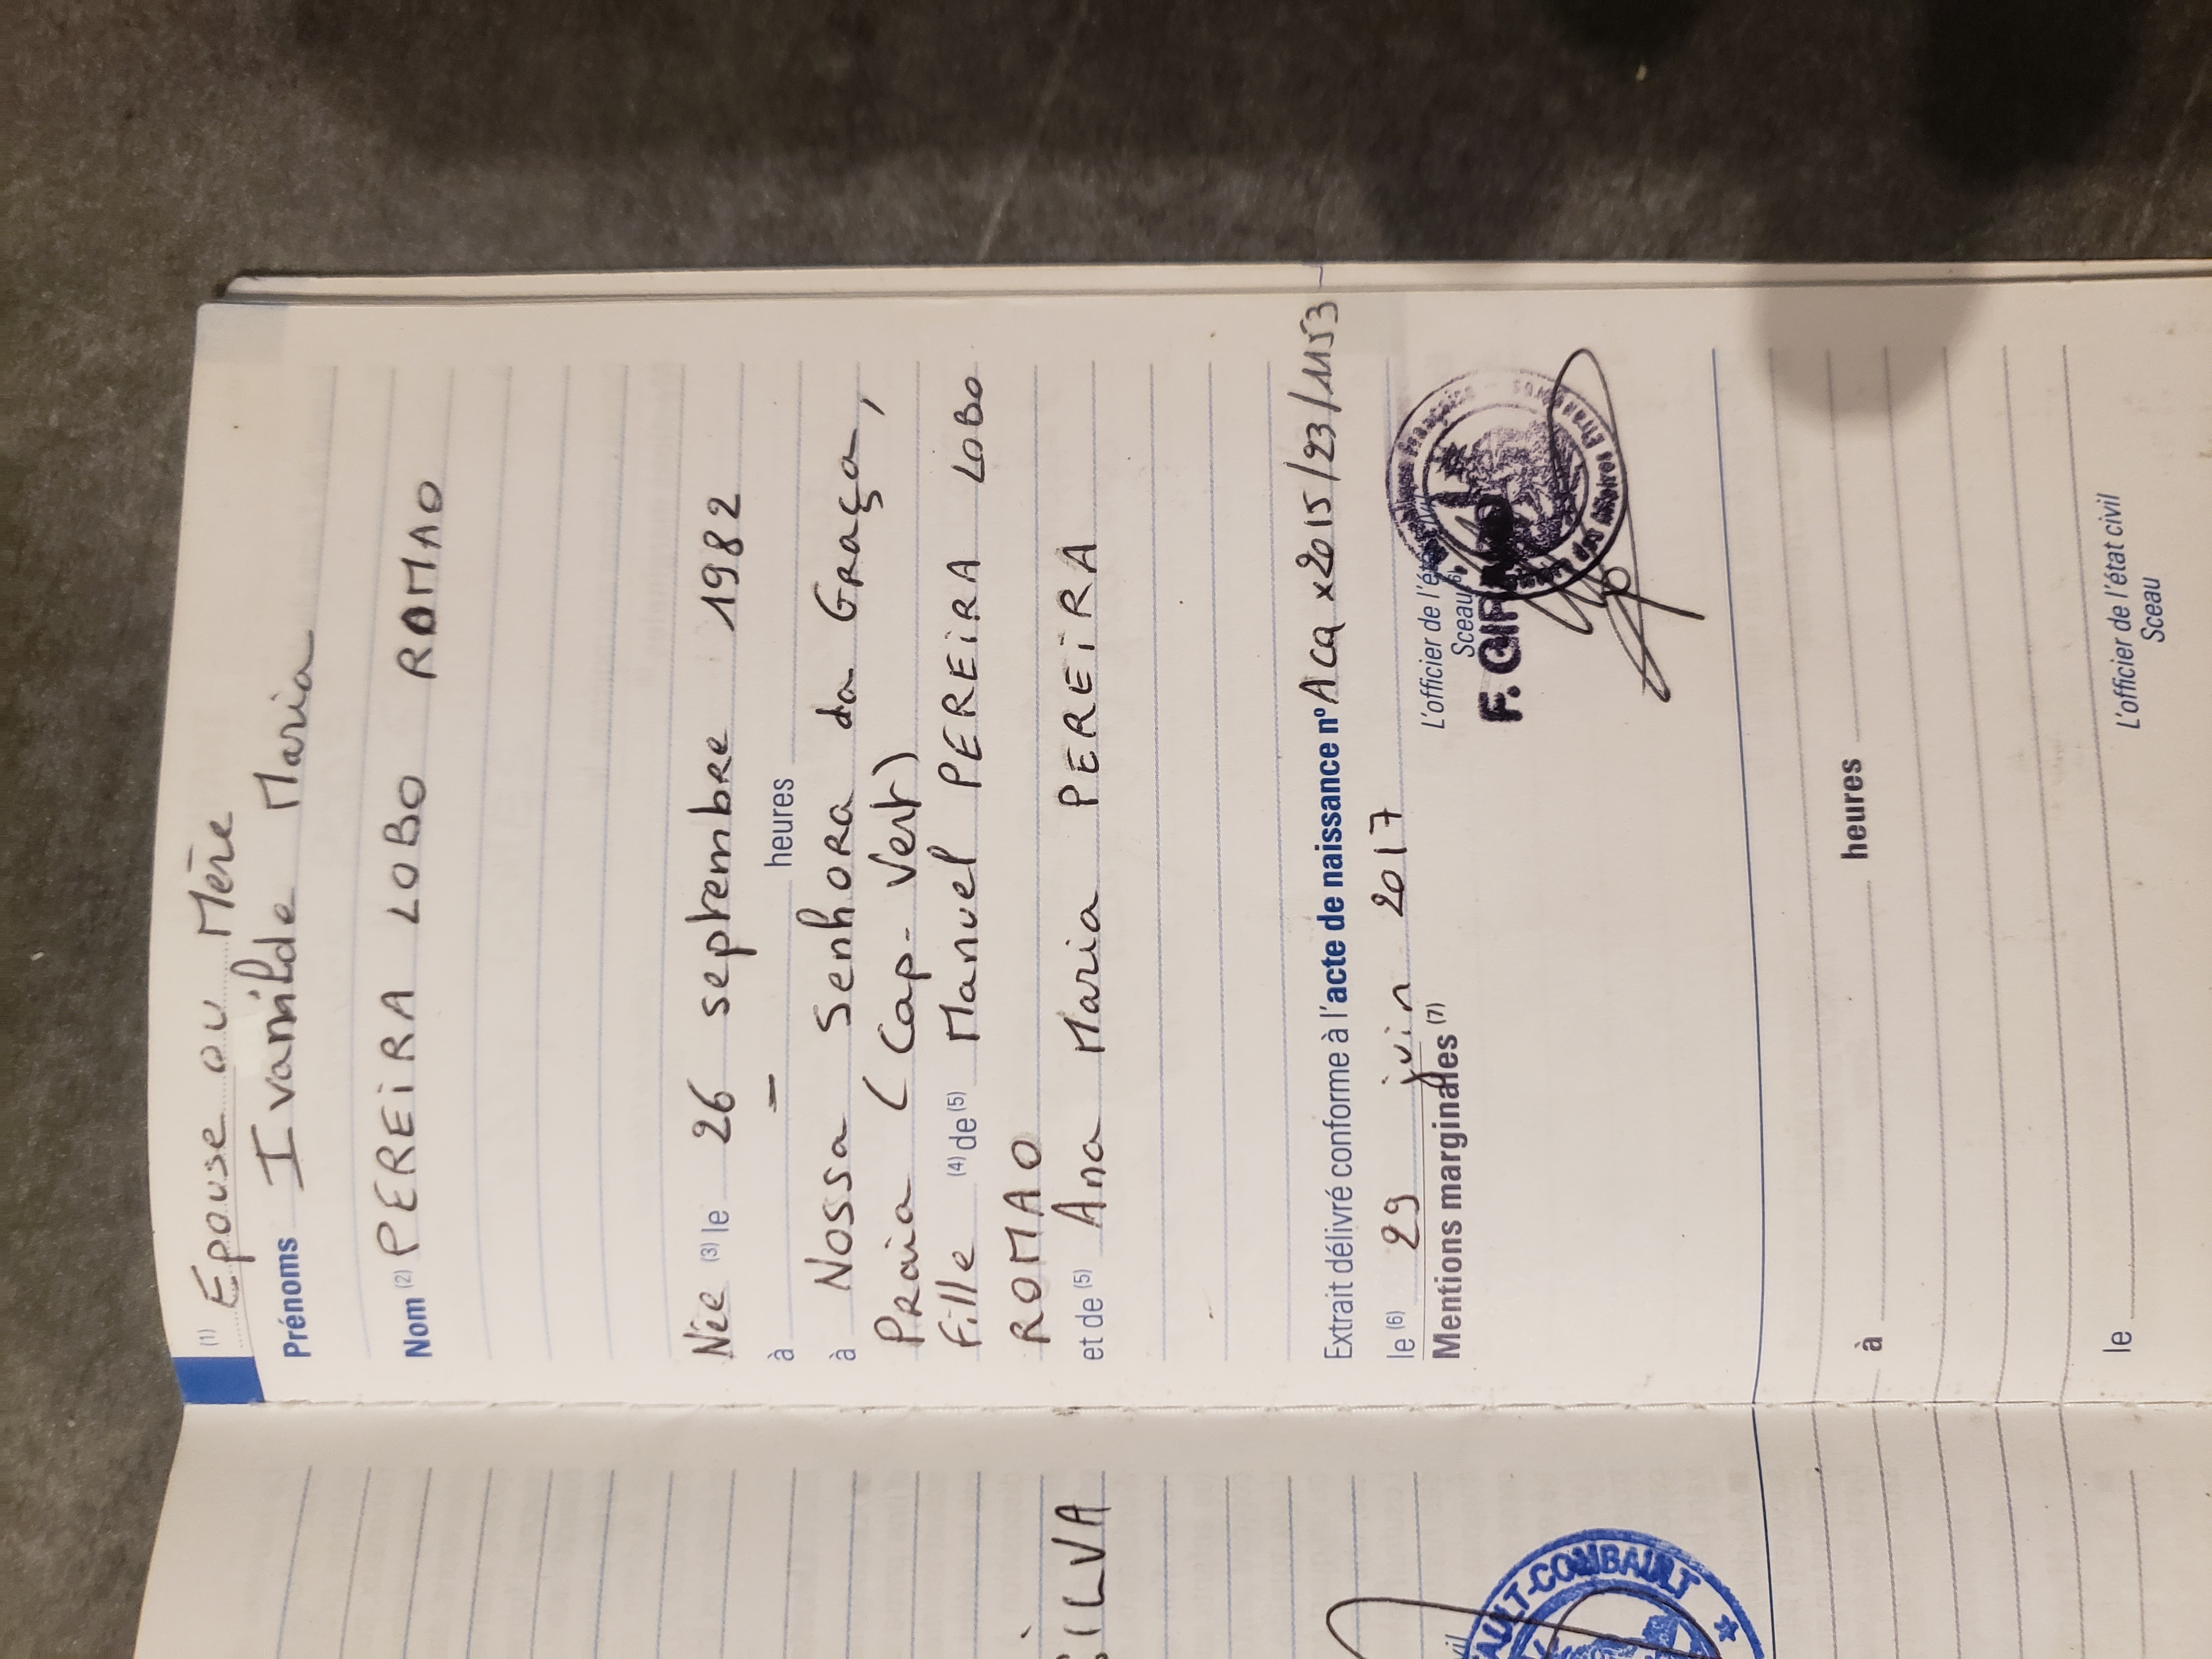 (1) Epouse ou Mère
Prénoms Ivanilde Maria
Nom (2) PEREIRA LOBO ROMAO
Née (3) le 26 septembre 1982
à — heures
à Nossa Senhora da Graça,
Praia (Cap-Vert)
Fille (4) de (5) Manuel PEREIRA LOBO
ROMAO
et de (5) Ana Maria PEREIRA
Extrait délivré conforme à l'acte de naissance n° Aca x2015/23/1153
le (6) 29 juin 2017
L'officier de l'état
Sceau (6)
F.
Mentions marginales (7)
à heures
le
L'officier de l'état civil
Sceau
SILVA
AULT-COMBAULT